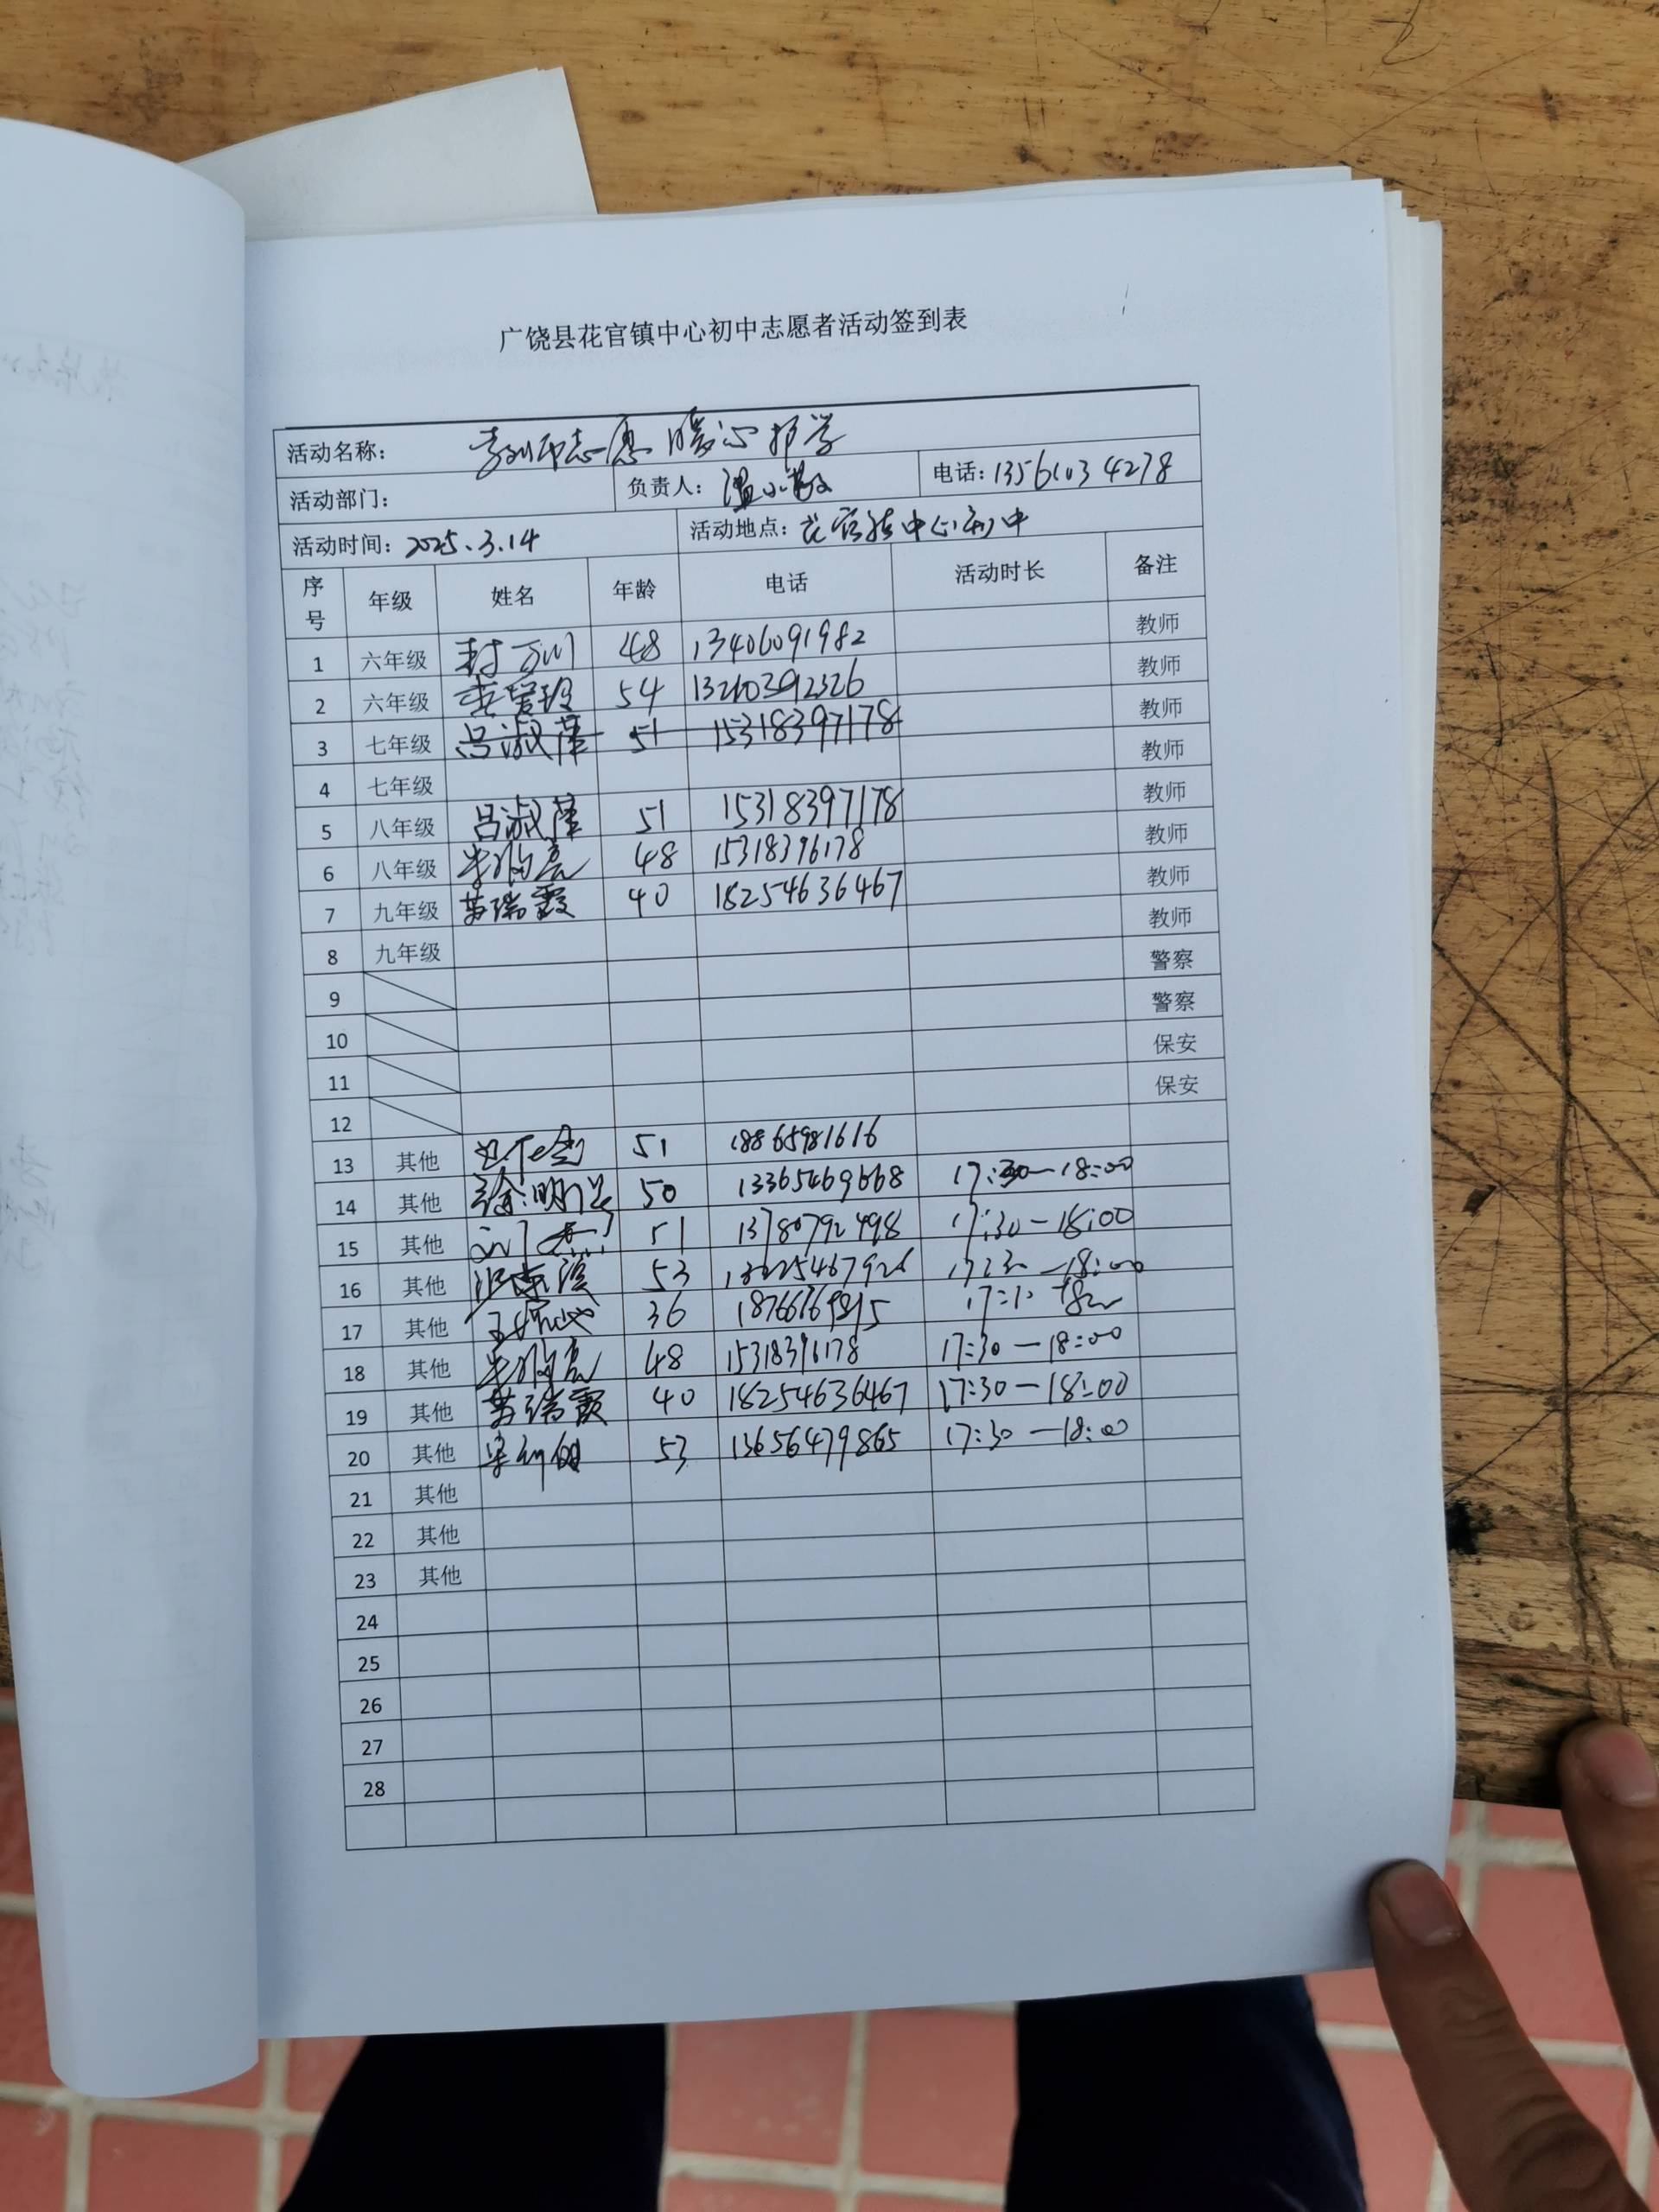 广饶县花官镇中心初中志愿者活动签到表
活动名称： 志愿 暖心护学
活动部门： 负责人： 温小敏 电话：13561034278
活动时间：2025.3.14 活动地点：花官镇中心初中
序号 年级 姓名 年龄 电话 活动时长 备注
1 六年级 封万川 48 13406091982 教师
2 六年级 54 13210392326 教师
3 七年级 吕淑萍 51 15318397178 教师
4 七年级 教师
5 八年级 吕淑萍 51 15318397178 教师
6 八年级 48 15318396178 教师
7 九年级 苏瑞霞 40 18254636467 教师
8 九年级 教师
9 警察
10 警察
11 保安
12 保安
13 其他 51 18865981616
14 其他 徐明 50 13365469668 17:30—18:00
15 其他 51 13780792498 17:30—18:00
16 其他 53 17:30—18:00
17 其他 36
18 其他 48 15318396178 17:30—18:00
19 其他 苏瑞霞 40 18254636467 17:30—18:00
20 其他 53 13656479865 17:30—18:00
21 其他
22 其他
23 其他
24
25
26
27
28